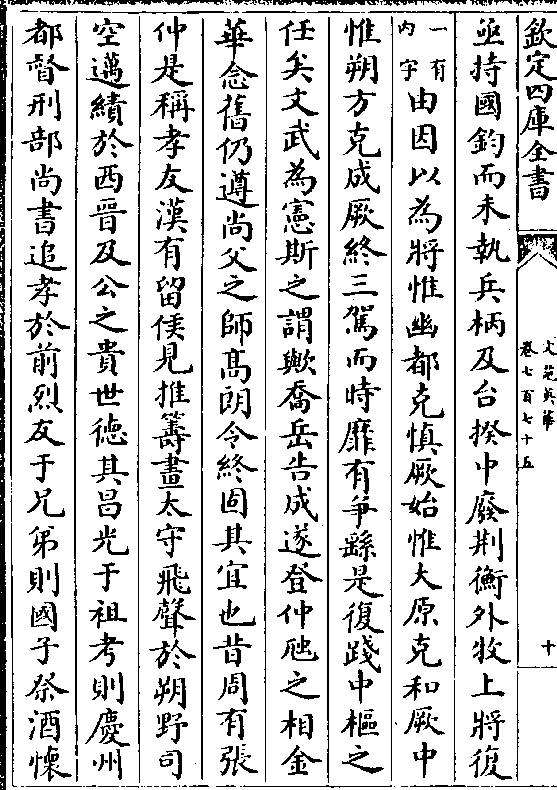 欽定四庫全書
文苑英華
卷七百七十五
十
亟持國鈞而未執兵柄及台揆中廢荆衡外牧上將復
一有内字由因以為將惟幽都克慎厥始惟大原克和厥中
惟朔方克成厥終三駕而時靡有爭繇是復踐中樞之
任矣文武為憲斯之謂歟喬岳告成遂登仲虺之相金
華念舊仍遵尚父之師髙朗令終固其宜也昔周有張
仲是稱孝友漢有留侯見推籌畫太守飛聲於朔野司
空邁績於西晉及公之貴世徳其昌光于祖考則慶州
都督刑部尚書追孝於前烈友于兄弟則國子祭酒懷